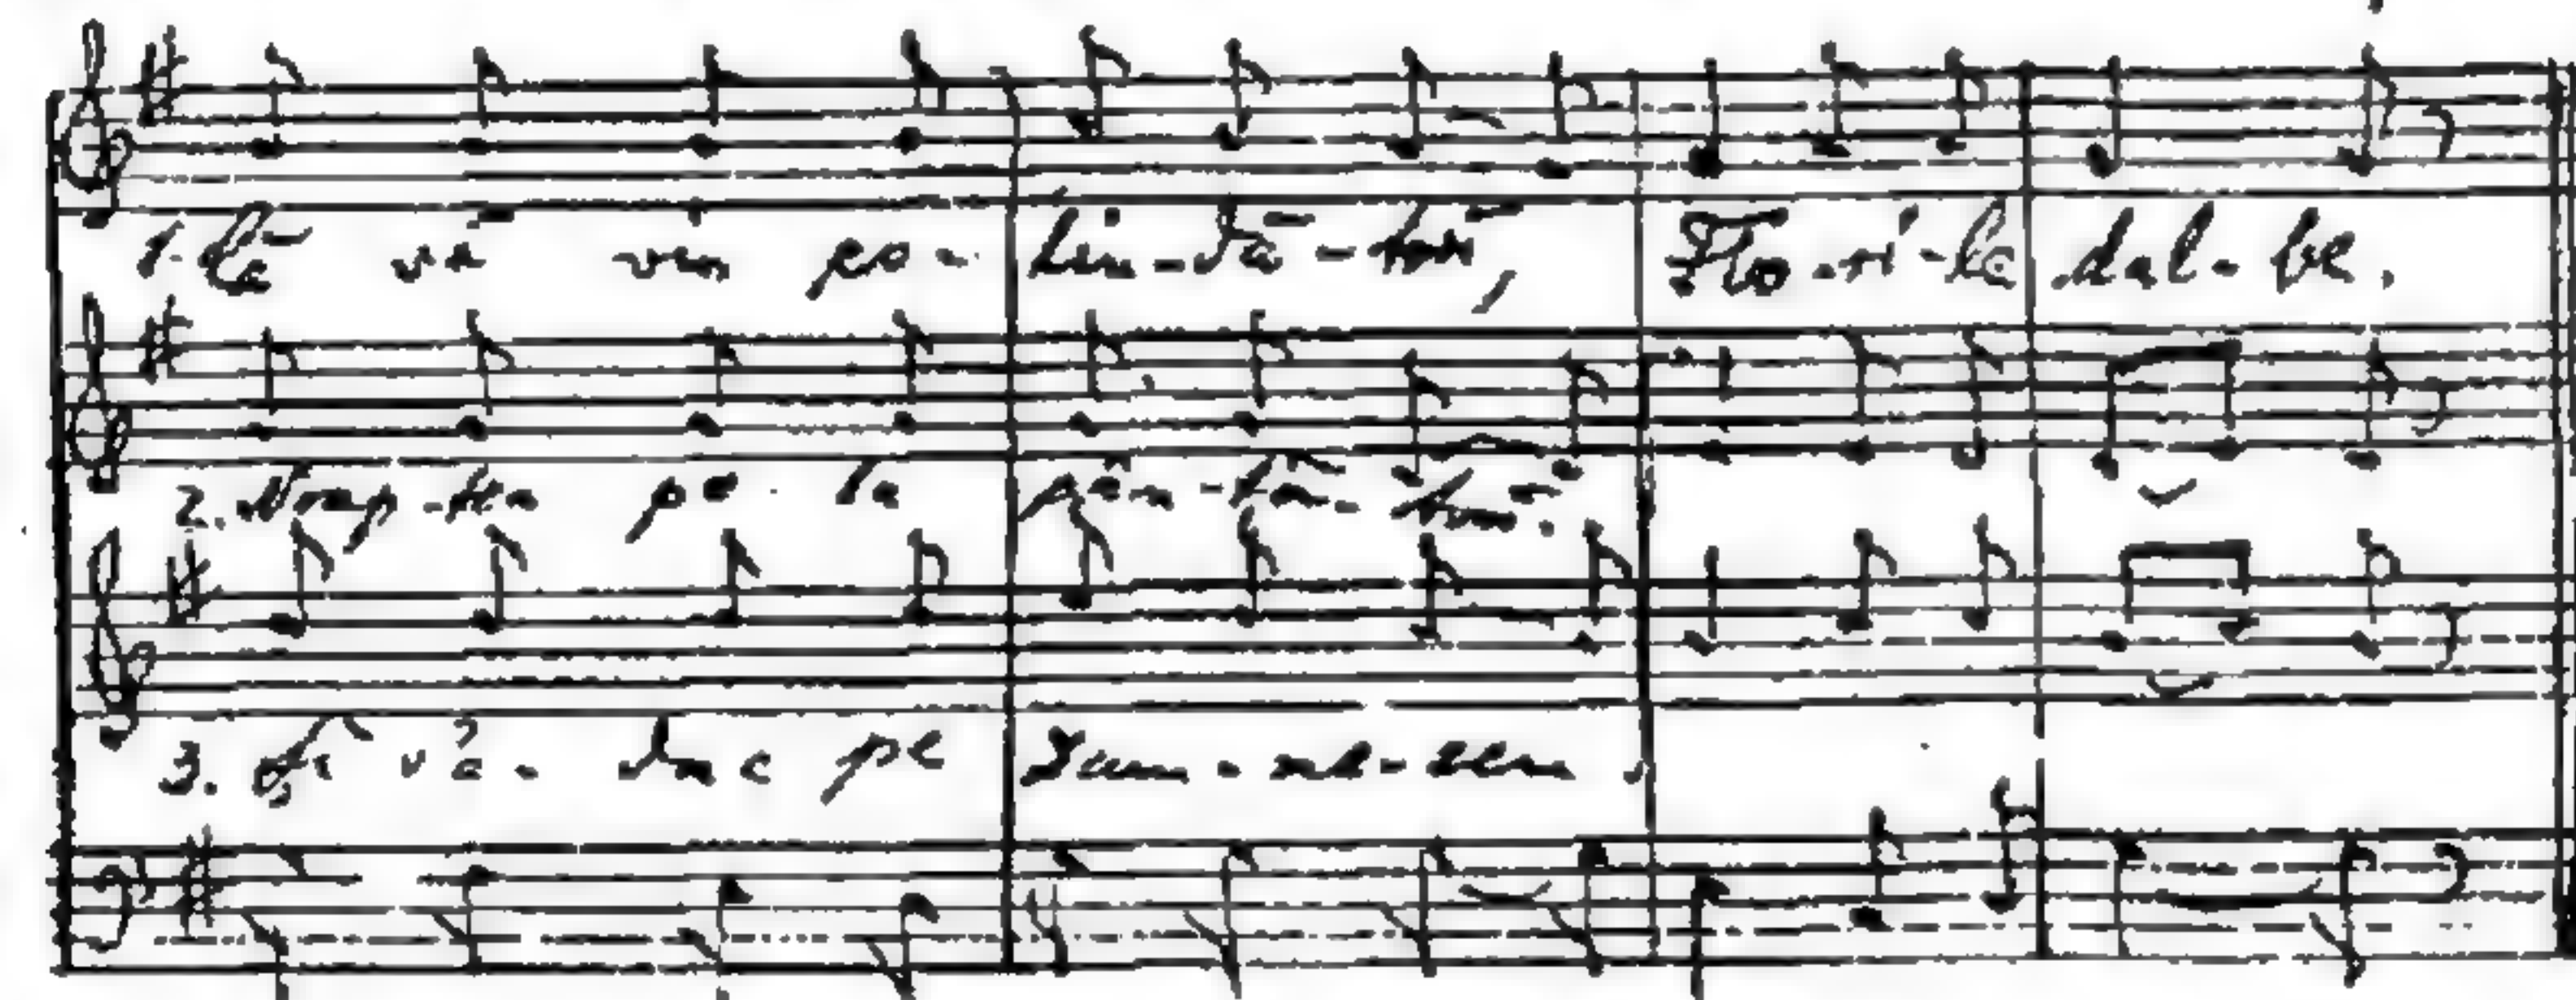 1. Că vă vin co-lin-dă-tori, Flo-ri-le dal-be.
2. Noap-tea pe la cân-tă-tori.
3. Și vă- duc pe Dum-ne-zeu